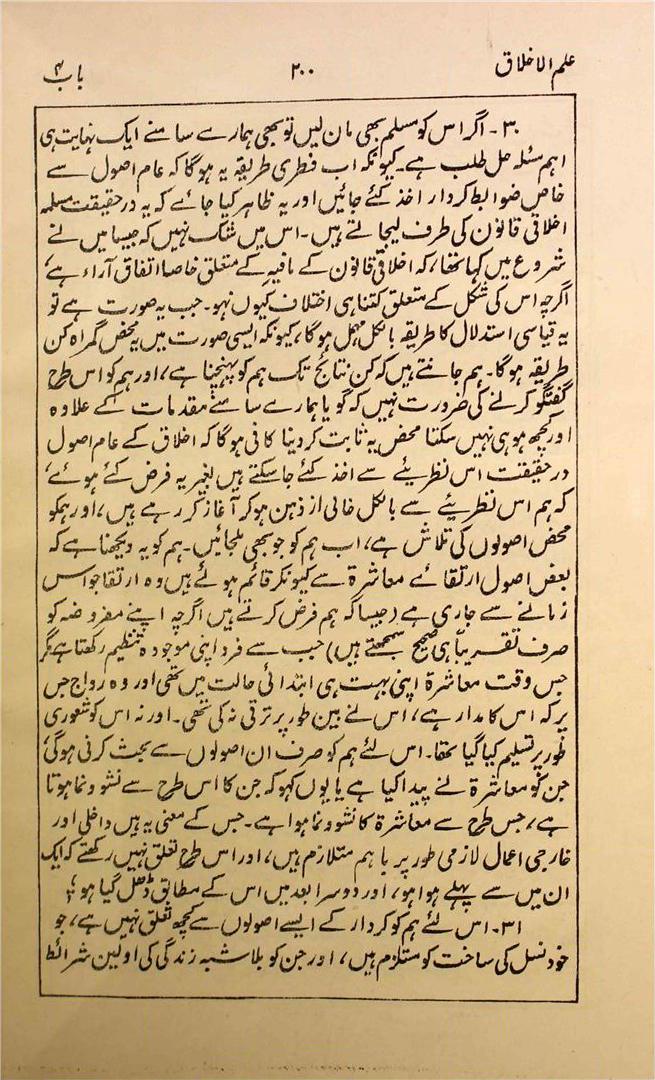 علم الاخلاق ۲۰۰ باب ۴
۳۰- اگر اس کو مسلم بھی مان لیں تو بھی ہمارے سامنے ایک نہایت ہی
اہم مسئلہ حل طلب ہے۔ کیونکہ اب فطری طریقہ یہ ہوگا کہ عام اصول سے
خاص ضوابط کردار اخذ کئے جائیں اور یہ ظاہر کیا جائے کہ یہ درحقیقت مسلمہ
اخلاقی قانون کی طرف لیجاتے ہیں۔ اس میں شک نہیں کہ جیسا میں نے
شروع میں کہا تھا، کہ اخلاقی قانون کے مافیہ کے متعلق خاصا اتفاق آراء ہے،
اگرچہ اس کی شکل کے متعلق کتنا ہی اختلاف کیوں نہو۔ جب یہ صورت ہے تو
یہ قیاسی استدلال کا طریقہ بالکل مہمل ہوگا، کیونکہ ایسی صورت میں یہ محض گمراہ کن
طریقہ ہوگا۔ ہم جانتے ہیں کہ کن نتائج تک ہم کو پہنچنا ہے، اور ہم کو اس طرح
گفتگو کرنے کی ضرورت نہیں کہ گویا ہمارے سامنے مقدمات کے علاوہ
اور کچھ ہو ہی نہیں سکتا محض یہ ثابت کر دینا کافی ہوگا کہ اخلاق کے عام اصول
درحقیقت اس نظریئے سے اخذ کئے جا سکتے ہیں بغیر یہ فرض کئے ہوئے،
کہ ہم اس نظریئے سے بالکل خالی از ذہن ہوکر آغاز کر رہے ہیں، اور ہمکو
محض اصولوں کی تلاش ہے، اب ہم کو جو بھی ملجائیں۔ ہم کو یہ دیکھنا ہے کہ
بعض اصول ارتقائے معاشرۃ سے کیونکر قائم ہوئے ہیں وہ ارتقا جو اس
زمانے سے جاری ہے (جیسا کہ ہم فرض کرتے ہیں اگرچہ اپنے مفروضہ کو
صرف تقریباً ہی صحیح سمجھتے ہیں) جب سے فرد اپنی موجودہ تنظیم رکھتا ہے مگر
جس وقت معاشرۃ اپنی بہت ہی ابتدائی حالت میں تھی اور وہ رواج جس
پر کہ اس کا مدار ہے، اس نے بین طور پر ترقی نہ کی تھی۔ اور نہ اس کو شعوری
طور پر تسلیم کیا گیا تھا۔ اس لئے ہم کو صرف ان اصولوں سے بحث کرنی ہوگی،
جن کو معاشرۃ نے پیدا کیا ہے یا یوں کہو کہ جن کا اس طرح سے نشوونما ہوتا
ہے، جس طرح سے معاشرۃ کا نشوونما ہوا ہے۔ جس کے معنی یہ ہیں داخلی اور
خارجی اعمال لازمی طور پر باہم متلازم ہیں، اور اس طرح تعلق نہیں رکھتے کہ ایک
ان میں سے پہلے ہوا ہو، اور دوسرا بعد میں اس کے مطابق ڈھل گیا ہو؛
۳۱- اس لئے ہم کو کردار کے ایسے اصولوں سے کچھ تعلق نہیں ہے، جو
خود نسل کی ساخت کو مستلزم ہیں، اور جن کو بلاشبہ زندگی کی اولین شرائط